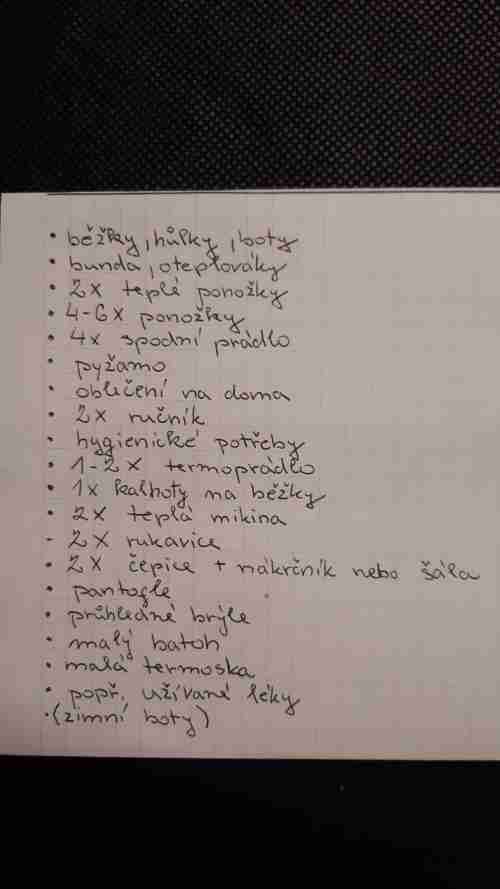 • běžky, hůlky, boty
• bunda, oteplováky
• 2x teplé ponožky
• 4-6x ponožky
• 4x spodní prádlo
• pyžamo
• oblečení na doma
• 2x ručník
• hygienické potřeby
• 1-2x termoprádlo
• 1x kalhoty na běžky
• 2x teplá mikina
- 2x rukavice
• 2x čepice + nákrčník nebo šála
• pantogle
• průhledné brýle
• malý batoh
• malá termoska
• popř. užívané léky
• (zimní boty)